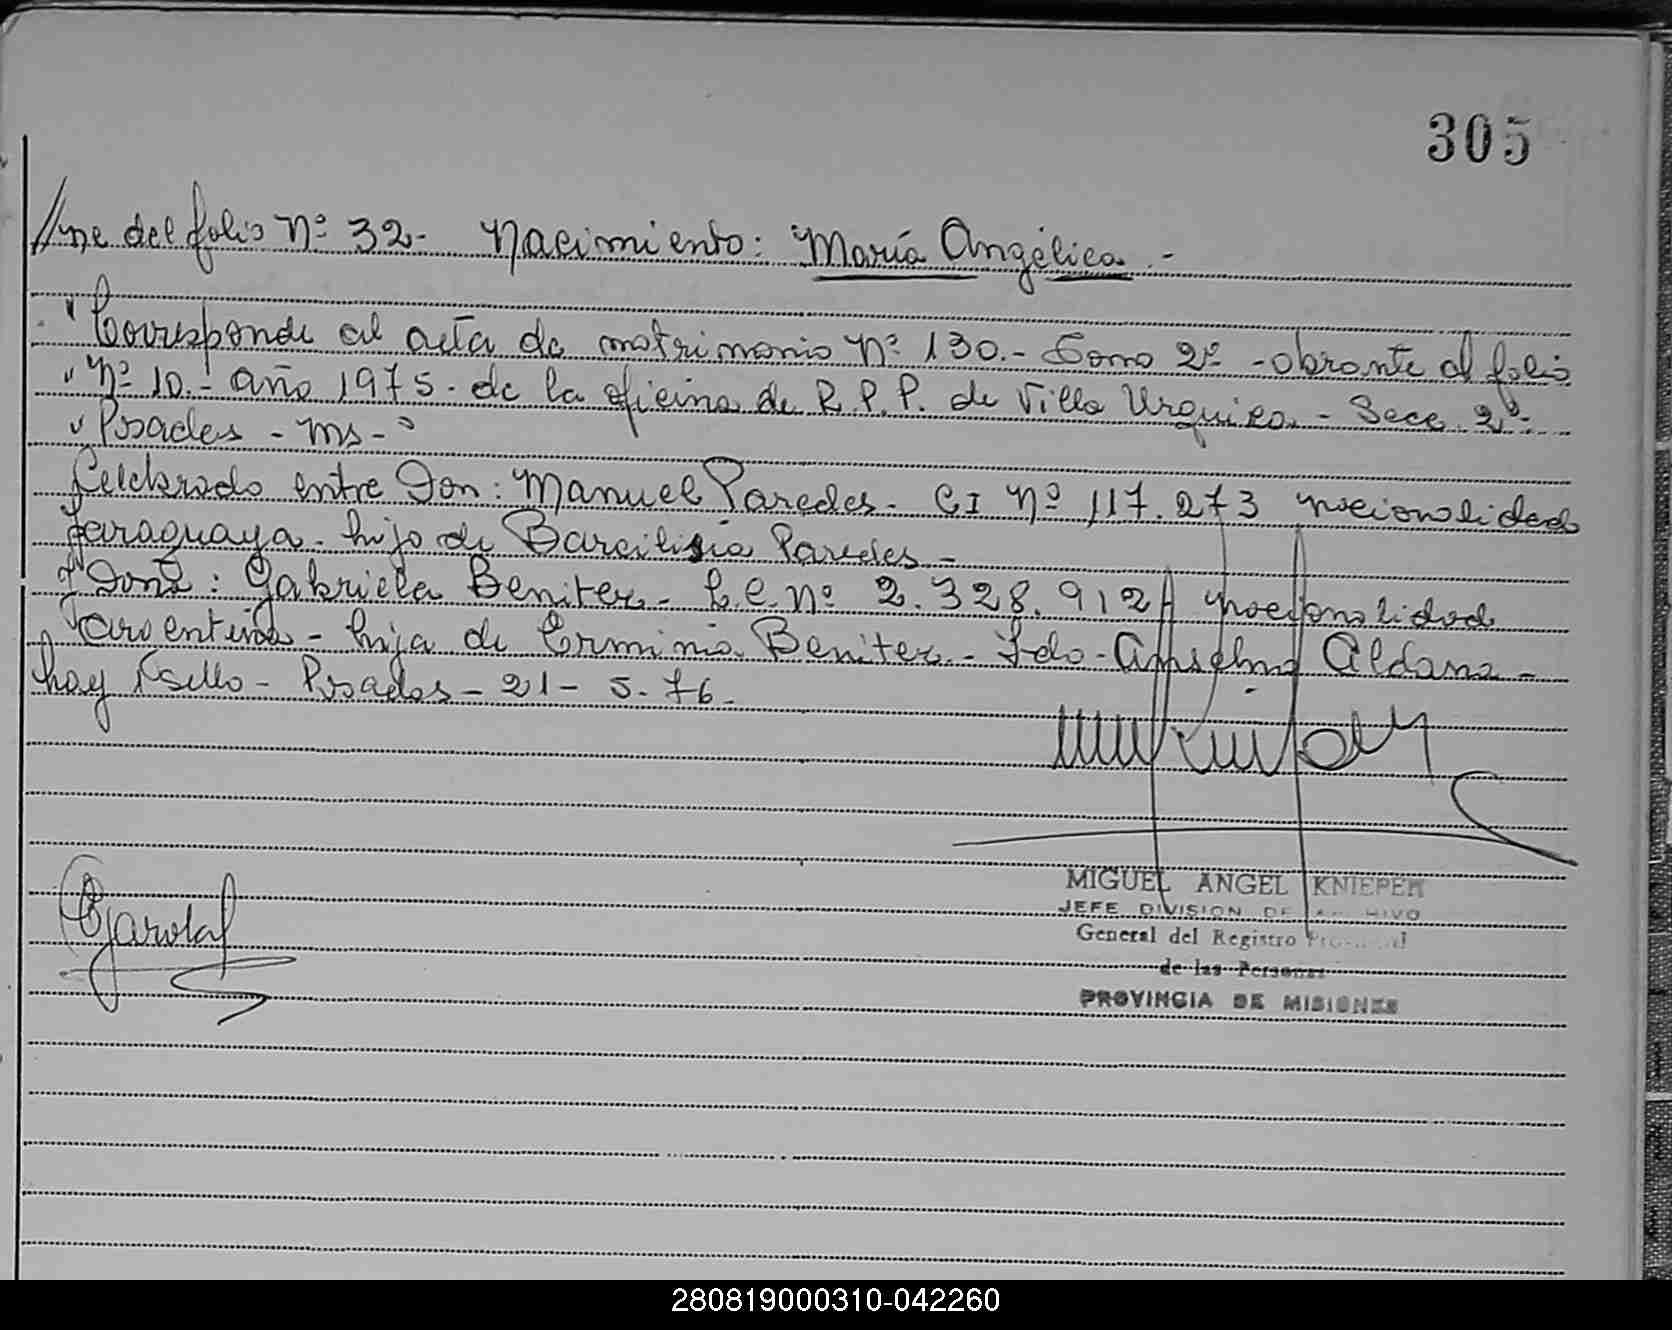 305
//ne del folio Nº 32- Nacimiento: María Angélica.-
"Corresponde al acta de matrimonio nº 130.- Tomo 2º -obrante al folio
"Nº 10.- año 1975. de la oficina de R.P.P. de Villa Urquiza - Secc. 2º-
" Posadas - Ms-"
Celebrado entre Don: Manuel Paredes. CI Nº 117.273 nacionalidad
paraguaya. hijo de Paredes -
y Doña: Gabriela Benitez - C.C. nº 2.328.912 nacionalidad
argentina - hija de Benitez - Fdo - Anselmo Aldana -
hay sello - Posadas - 21 - 5. 76.
MIGUEL ANGEL KNIEPER
JEFE DIVISION DE
General del Registro
de las Personas
PROVINCIA DE MISIONES
280819000310-042260